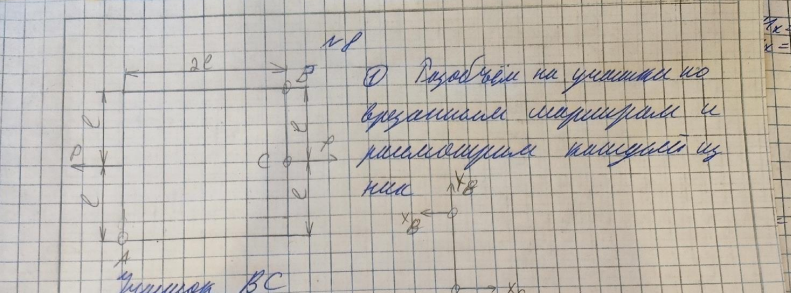 №8
2l
① Разобъём на участки по
врезанным шарнирам и
рассмотрим каждый из
них
l
l
l
P
C
A
Y_B
X_B
Участок BC